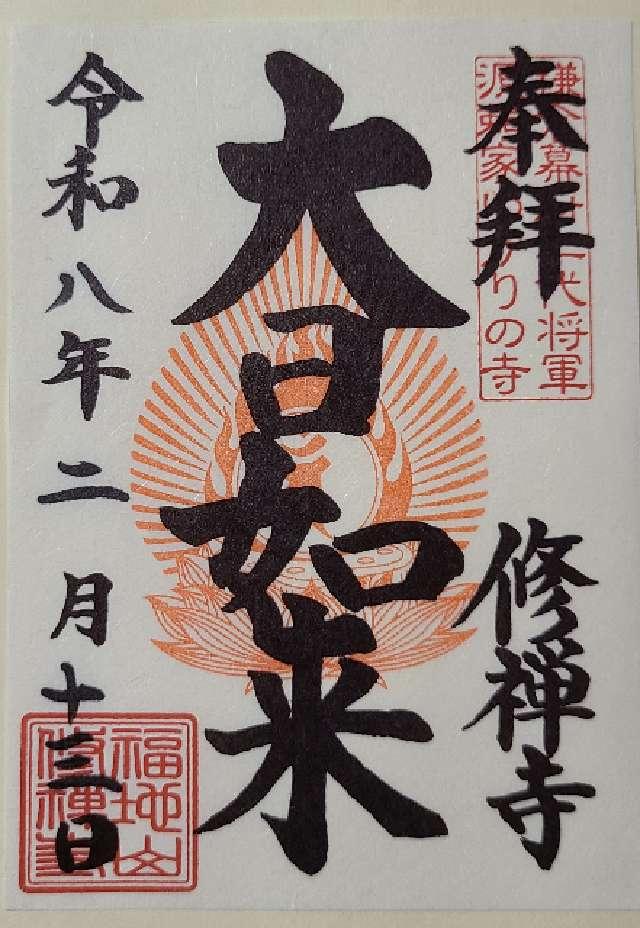 奉拝
鎌倉幕府二代将軍
源頼家ゆかりの寺
修禅寺
大日如来
令和八年二月十三日
福地山
修禅寺